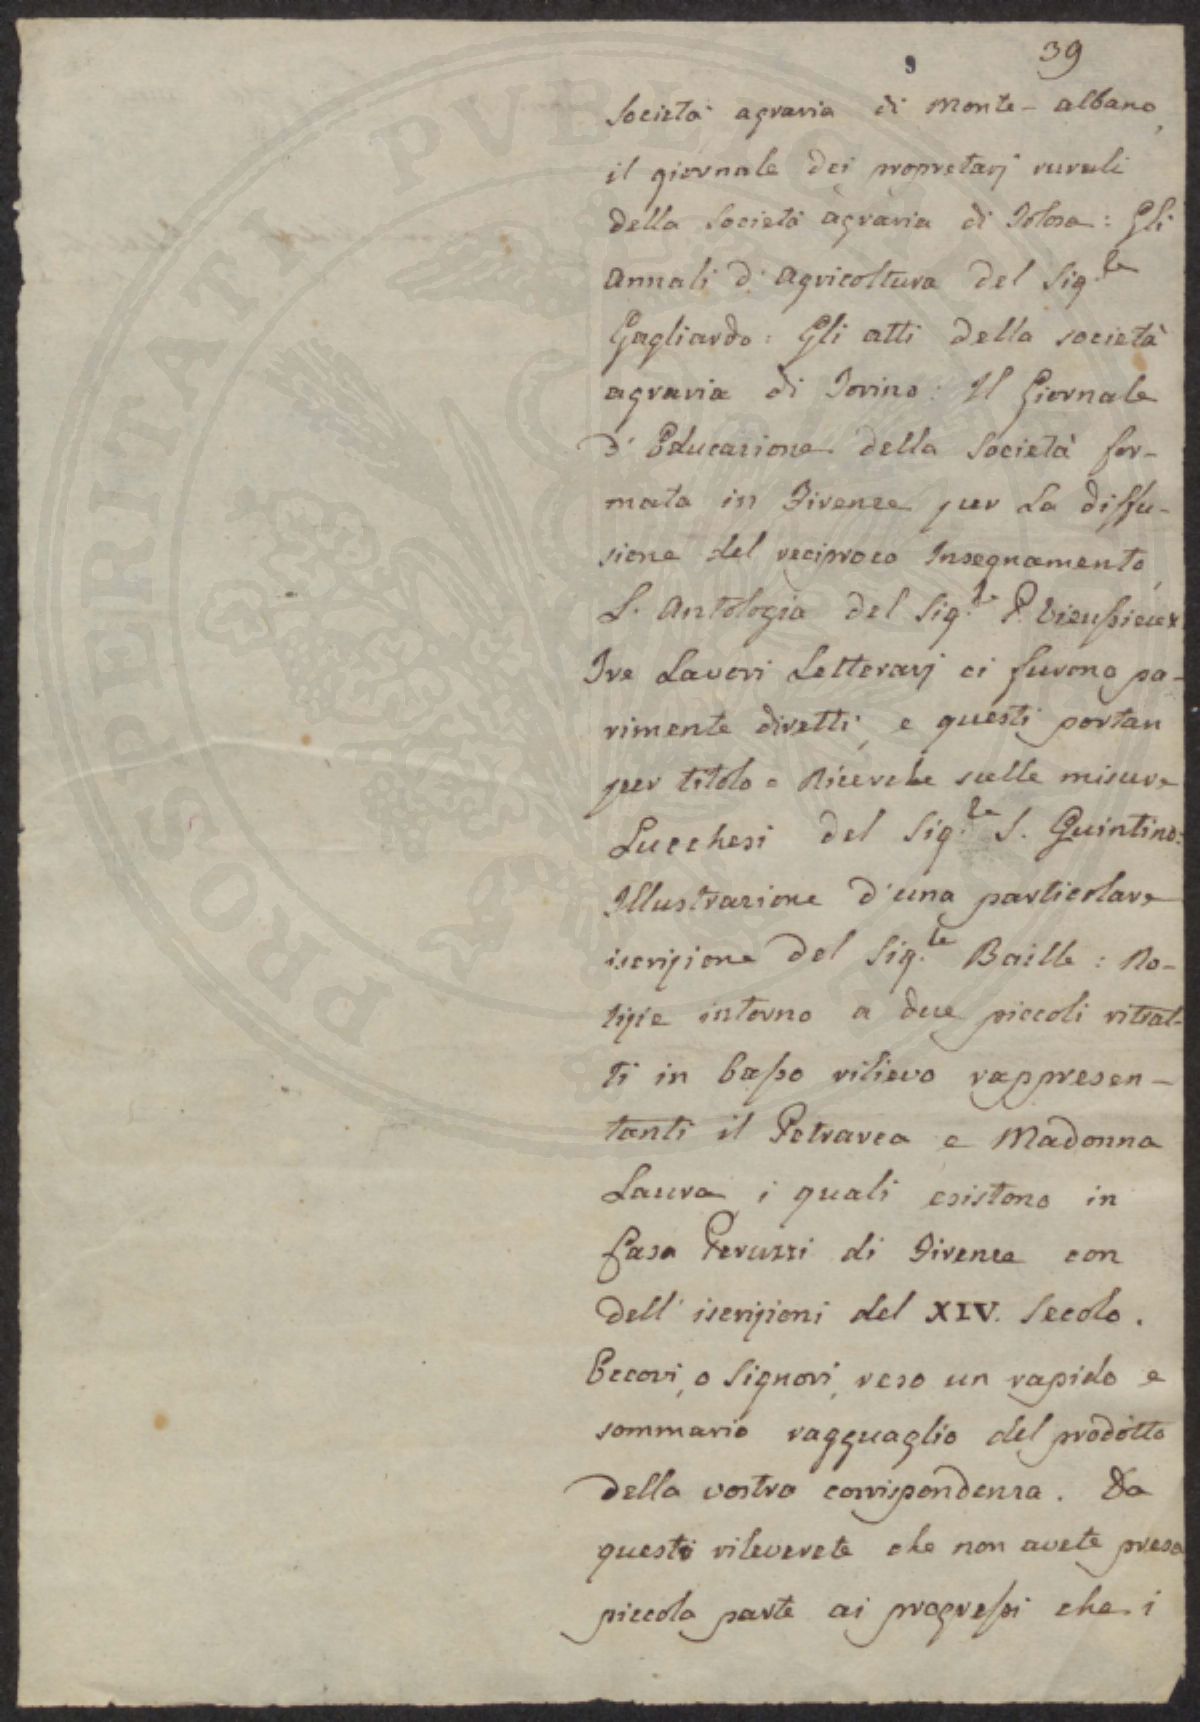 39
Società agraria di Monte-albano,
il giornale dei propretarj rurali
della Società agraria di Tolosa: Gli
Annali d'Agricoltura del Sig.re
Gagliardo: Gli atti della società
agraria di Torino: Il Giornale
d'Educazione della Società for-
mata in Firenze per La diffu-
sione del reciproco Insegnamento,
L'Antologia del Sig.re P. Vieussieux
Tre Lavori Letterarj ci furono pa-
rimente diretti, e questi portan
per titolo = Ricerche sulle misure
Lucchesi del Sig.re S. Quintino:
Illustrazione d'una particolare
iscrizione del Sig.re Baille: No-
tizie intorno a due piccoli ritrat-
ti in basso rilievo rappresen-
tanti il Petrarca e Madonna
Laura, i quali esistono in
Casa Peruzzi di Firenze con
dell'iscrizioni del XIV. Secolo.
Eccovi, o Signori, reso un rapido e
sommario ragguaglio del prodotto
della vostra corrispondenza. Da
questo rileverete che non avete presa
piccola parte ai progressi che i
PROSPERITATI PVBLIC